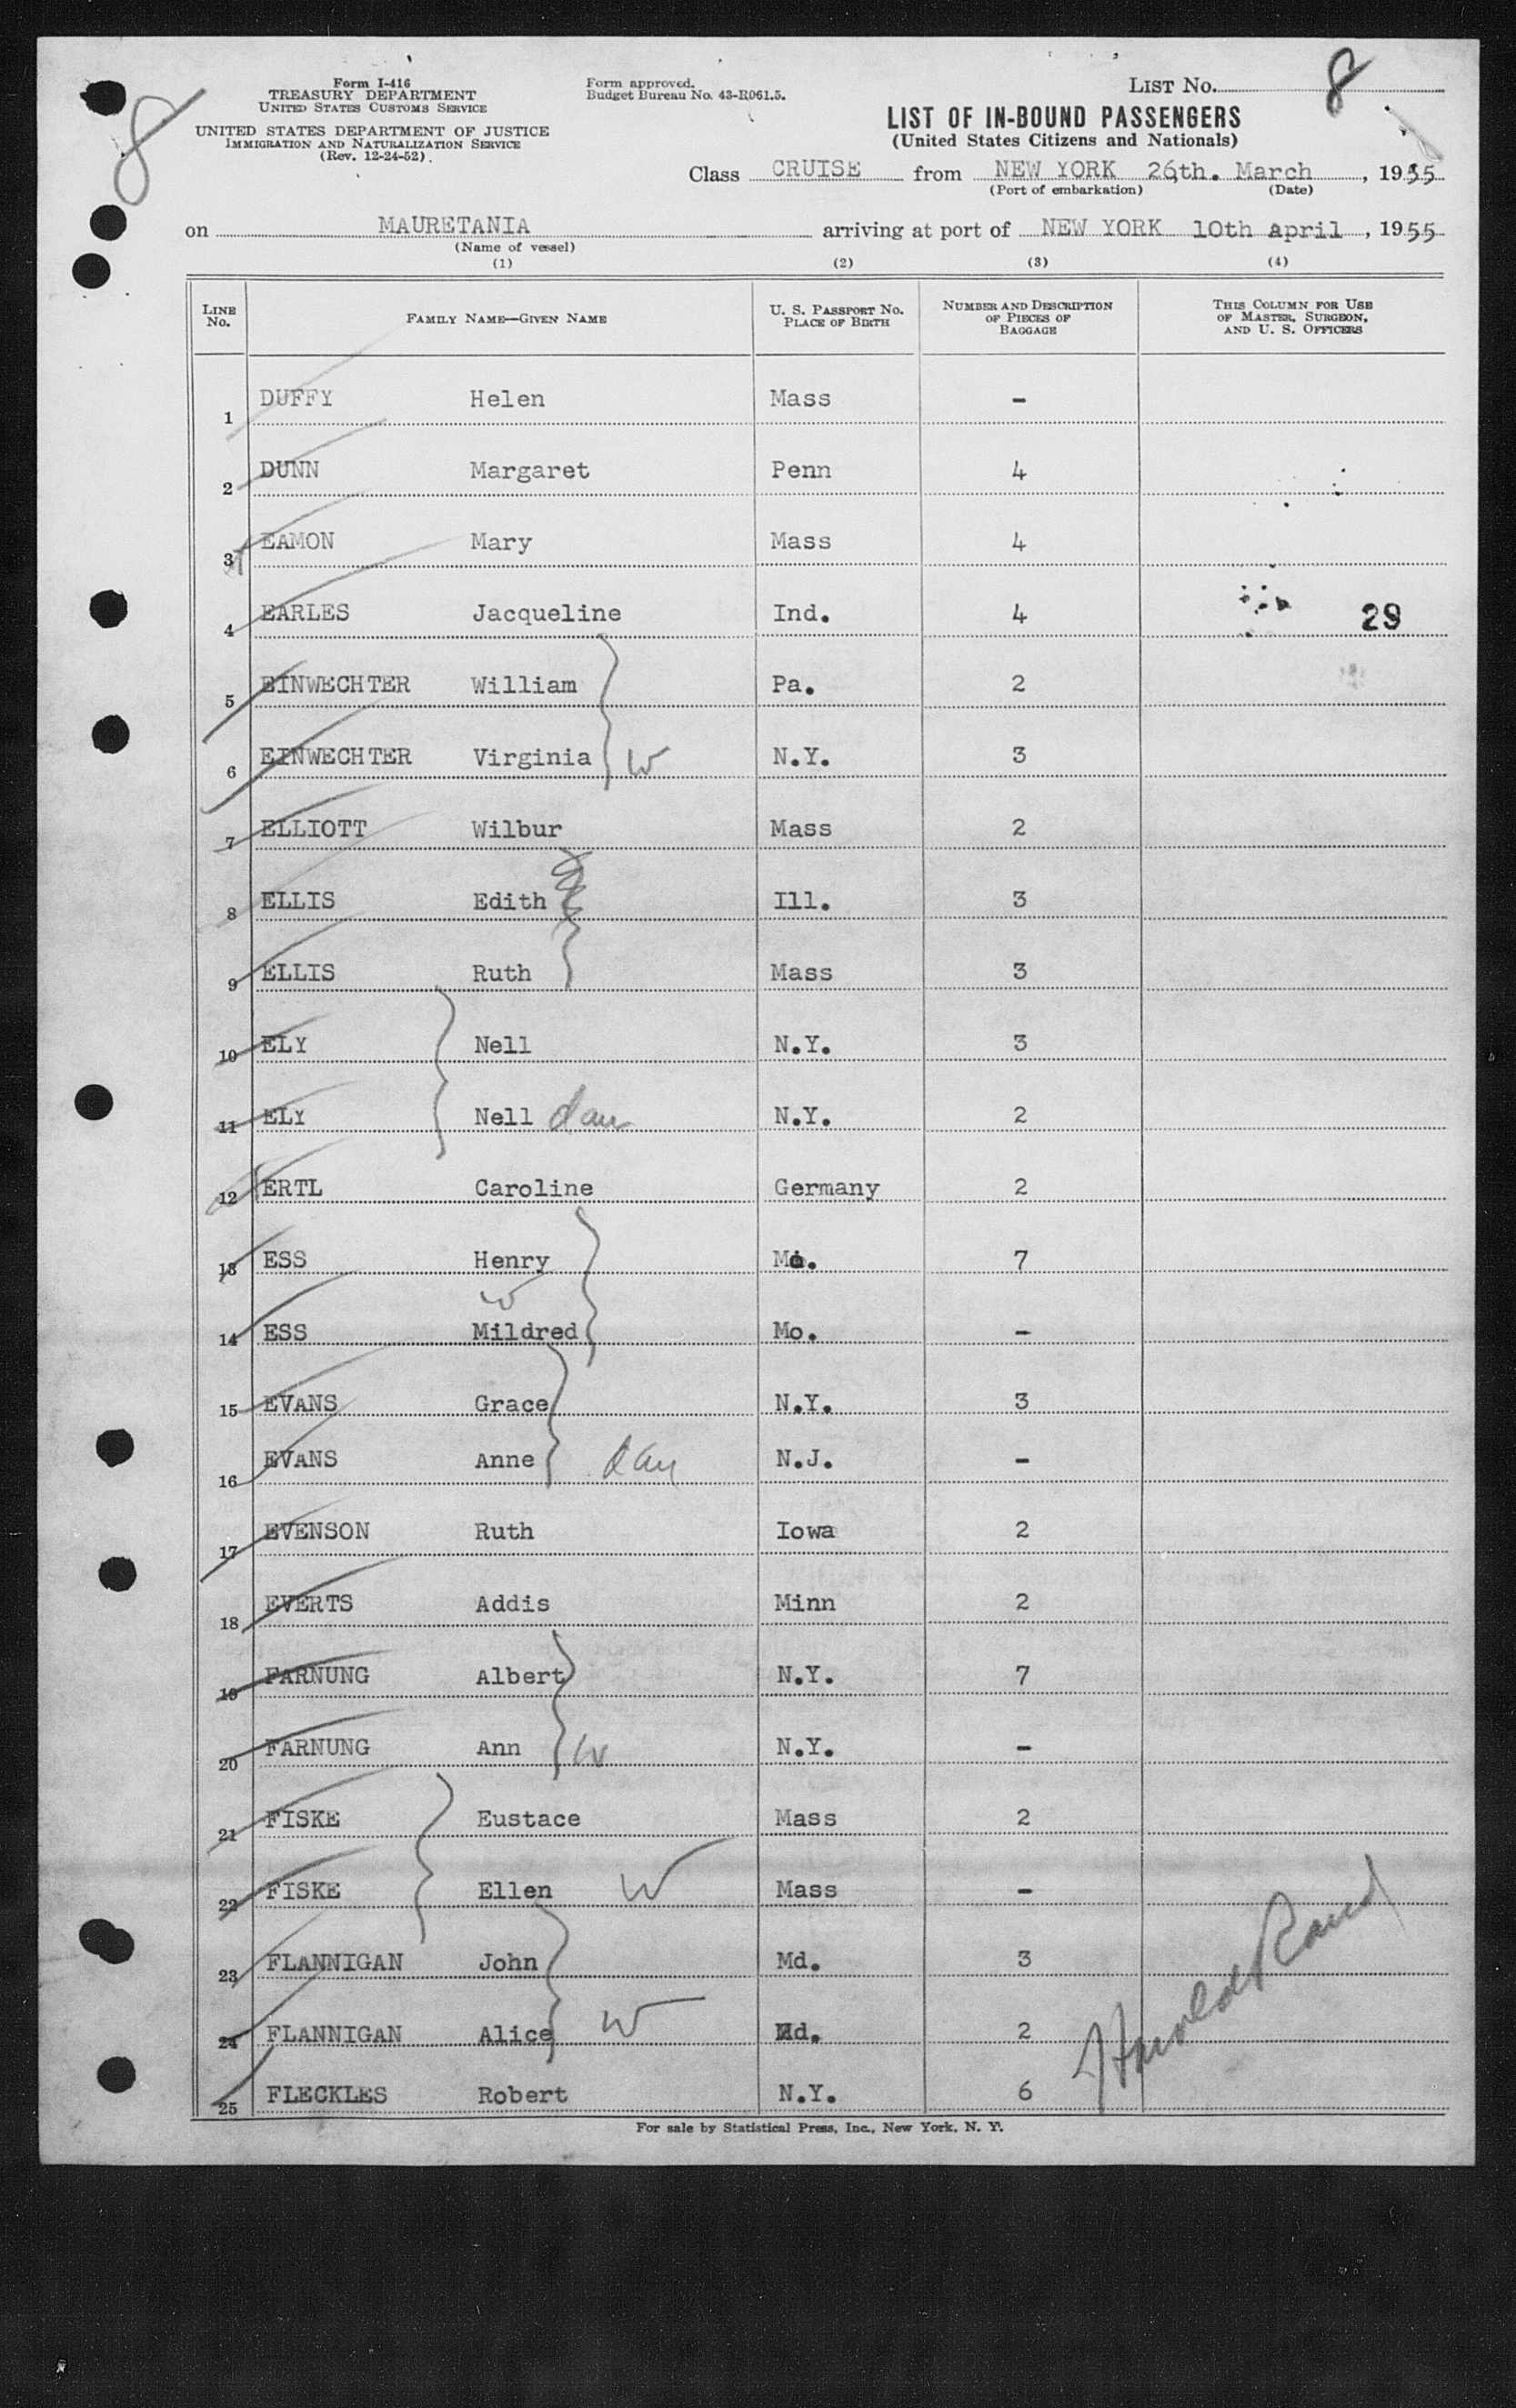 8
8
Form I-416
TREASURY DEPARTMENT
UNITED STATES CUSTOMS SERVICE
UNITED STATES DEPARTMENT OF JUSTICE
IMMIGRATION AND NATURALIZATION SERVICE
(Rev. 12-24-52)
Form approved.
Budget Bureau No. 43-R061.5.
LIST NO.
LIST OF IN-BOUND PASSENGERS
(United States Citizens and Nationals)
Class CRUISE from NEW YORK 26th. March, 1955
(Port of embarkation) (Date)
on MAURETANIA arriving at port of NEW YORK 10th April, 1955
(Name of vessel)
(1) (2) (3) (4)
LINE NO. FAMILY NAME—GIVEN NAME U. S. PASSPORT NO. PLACE OF BIRTH NUMBER AND DESCRIPTION OF PIECES OF BAGGAGE THIS COLUMN FOR USE OF MASTER, SURGEON, AND U. S. OFFICERS
1 DUFFY Helen Mass -
2 DUNN Margaret Penn 4
3 EAMON Mary Mass 4
4 EARLES Jacqueline Ind. 4 29
5 EINWECHTER William Pa. 2
6 EINWECHTER Virginia W N.Y. 3
7 ELLIOTT Wilbur Mass 2
8 ELLIS Edith Ill. 3
9 ELLIS Ruth Mass 3
10 ELY Nell N.Y. 3
11 ELY Nell dau N.Y. 2
12 ERTL Caroline Germany 2
13 ESS Henry Mo. 7
W
14 ESS Mildred Mo. -
15 EVANS Grace N.Y. 3
16 EVANS Anne dau N.J. -
17 EVENSON Ruth Iowa 2
18 EVERTS Addis Minn 2
19 FARNUNG Albert N.Y. 7
20 FARNUNG Ann W N.Y. -
21 FISKE Eustace Mass 2
22 FISKE Ellen W Mass -
23 FLANNIGAN John Md. 3
24 FLANNIGAN Alice W Md. 2
25 FLECKLES Robert N.Y. 6
Harold Rand
For sale by Statistical Press, Inc., New York, N. Y.